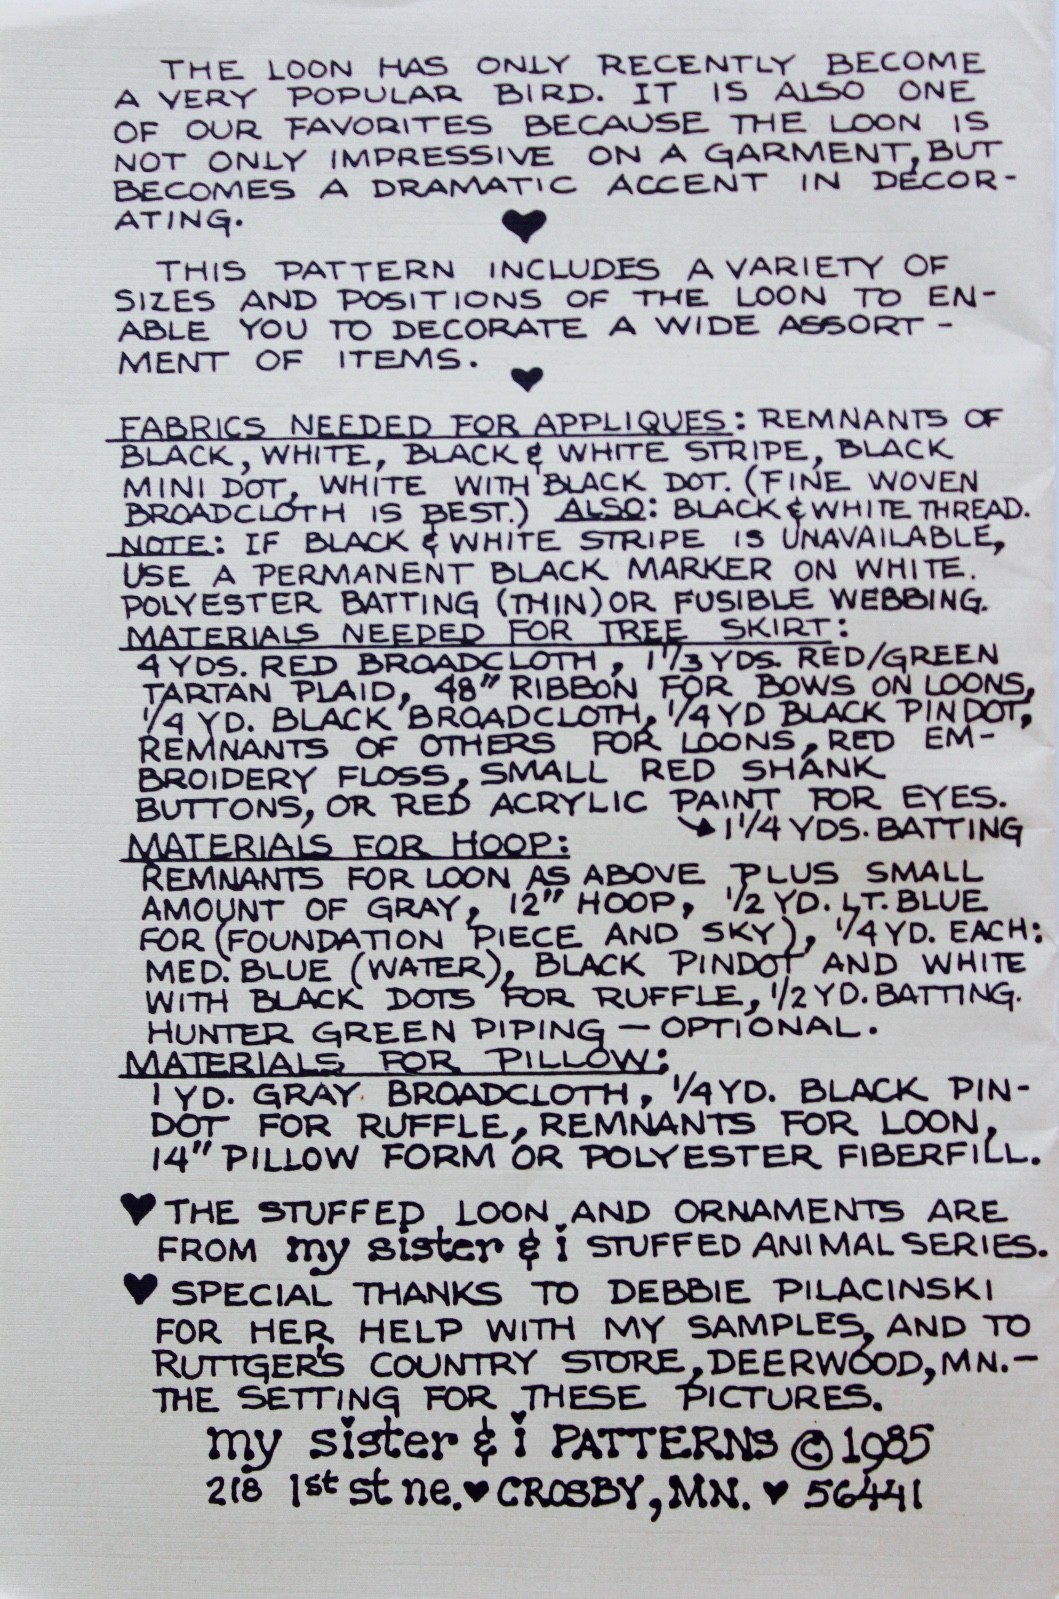 THE LOON HAS ONLY RECENTLY BECOME
A VERY POPULAR BIRD. IT IS ALSO ONE
OF OUR FAVORITES BECAUSE THE LOON IS
NOT ONLY IMPRESSIVE ON A GARMENT, BUT
BECOMES A DRAMATIC ACCENT IN DECOR-
ATING. ♥
THIS PATTERN INCLUDES A VARIETY OF
SIZES AND POSITIONS OF THE LOON TO EN-
ABLE YOU TO DECORATE A WIDE ASSORT-
MENT OF ITEMS. ♥
FABRICS NEEDED FOR APPLIQUES: REMNANTS OF
BLACK, WHITE, BLACK & WHITE STRIPE, BLACK
MINI DOT, WHITE WITH BLACK DOT. (FINE WOVEN
BROADCLOTH IS BEST.) ALSO: BLACK & WHITE THREAD.
NOTE: IF BLACK & WHITE STRIPE IS UNAVAILABLE,
USE A PERMANENT BLACK MARKER ON WHITE.
POLYESTER BATTING (THIN) OR FUSIBLE WEBBING.
MATERIALS NEEDED FOR TREE SKIRT:
4 YDS. RED BROADCLOTH, 1 1/3 YDS. RED/GREEN
TARTAN PLAID, 48" RIBBON FOR BOWS ON LOONS,
1/4 YD. BLACK BROADCLOTH, 1/4 YD BLACK PINDOT,
REMNANTS OF OTHERS FOR LOONS, RED EM-
BROIDERY FLOSS, SMALL RED SHANK
BUTTONS, OR RED ACRYLIC PAINT FOR EYES.
↳ 1 1/4 YDS. BATTING
MATERIALS FOR HOOP:
REMNANTS FOR LOON AS ABOVE PLUS SMALL
AMOUNT OF GRAY, 12" HOOP, 1/2 YD. LT. BLUE
FOR (FOUNDATION PIECE AND SKY), 1/4 YD. EACH:
MED. BLUE (WATER), BLACK PINDOT AND WHITE
WITH BLACK DOTS FOR RUFFLE, 1/2 YD. BATTING.
HUNTER GREEN PIPING — OPTIONAL.
MATERIALS FOR PILLOW:
1 YD. GRAY BROADCLOTH, 1/4 YD. BLACK PIN-
DOT FOR RUFFLE, REMNANTS FOR LOON,
14" PILLOW FORM OR POLYESTER FIBERFILL.
♥ THE STUFFED LOON AND ORNAMENTS ARE
FROM my sister & i STUFFED ANIMAL SERIES.
♥ SPECIAL THANKS TO DEBBIE PILACINSKI
FOR HER HELP WITH MY SAMPLES, AND TO
RUTTGER'S COUNTRY STORE, DEERWOOD, MN.—
THE SETTING FOR THESE PICTURES.
my sister & i PATTERNS © 1985
218 1st st ne. ♥ CROSBY, MN. ♥ 56441